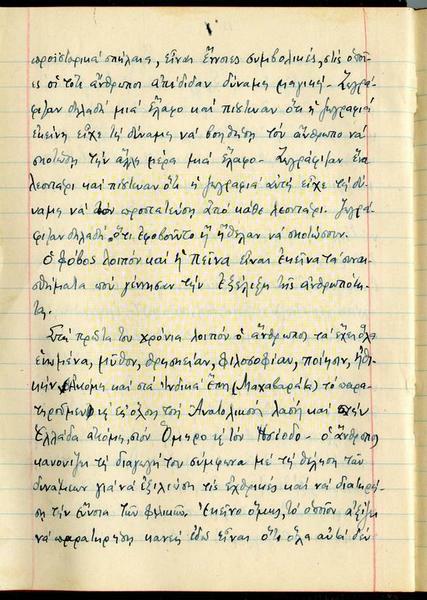 προϊστορικά σπήλαια, εἶναι ἔννοιες συμβολικές, στίς ὁποῖ-
ες οἱ τότε ἄνθρωποι ἀπέδιδαν δύναμη μαγική. Ζωγρά-
φιζαν δηλαδή μιά ἔλαφο καί πίστευαν ὅτι ἡ ζωγραφιά
ἐκείνη εἶχε τή δύναμη νά βοηθήση τόν ἄνθρωπο νά
σκοτώση τήν ἄλλη μέρα μιά ἔλαφο. Ζωγράφιζαν ἕνα
λεοντάρι καί πίστευαν ὅτι ἡ ζωγραφιά αὐτή εἶχε τή δύ-
ναμη νά τόν προστατεύση ἀπό κάθε λεοντάρι. Ζωγρά-
φιζαν δηλαδή ὅ,τι ἐφοβοῦντο ἤ ἤθελαν νά σκοτώσουν.
Ὁ φόβος λοιπόν καί ἡ πεῖνα εἶναι ἐκεῖνα τά συναι-
σθήματα πού γέννησαν τήν ἐξέλιξη τῆς ἀνθρωπότη-
τας.
Στά πρῶτα του χρόνια λοιπόν ὁ ἄνθρωπος τά ἔχει ὅλα
ἑνωμένα, μῦθον, θρησκείαν, φιλοσοφίαν, ποίησιν, ἠθι-
κήν. Ἀκόμη καί στά Ἰνδικά ἔπη (Μαχαβαράτα) τό παρα-
τηροῦμεν, εἰς ὅλους τούς Ἀνατολικούς λαούς καί στήν
Ἑλλάδα ἀκόμη, στόν Ὅμηρο ἤ τόν Ἡσίοδο. ὁ ἄνθρωπος
κανονίζει τή διαγωγή του σύμφωνα μέ τή θέληση τῶν
δυνάμεων γιά νά ἐξιλεώση τίς ἐχθρικές καί νά διατηρή-
ση τήν εὔνοια τῶν φιλικῶν. Ἐκεῖνο ὅμως, τό ὁποῖον ἀξίζει
νά παρατηρήση κανείς ἐδῶ εἶναι ὅτι ὅλα αὐτά δέν